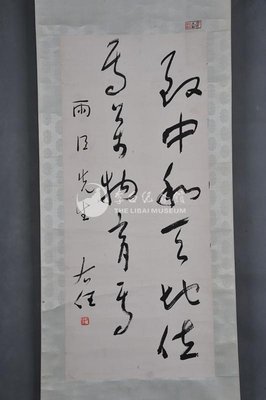 致中和天地位
焉萬物育焉
雨臣先生
右任
李白纪念馆
THE LIBAI MUSEUM